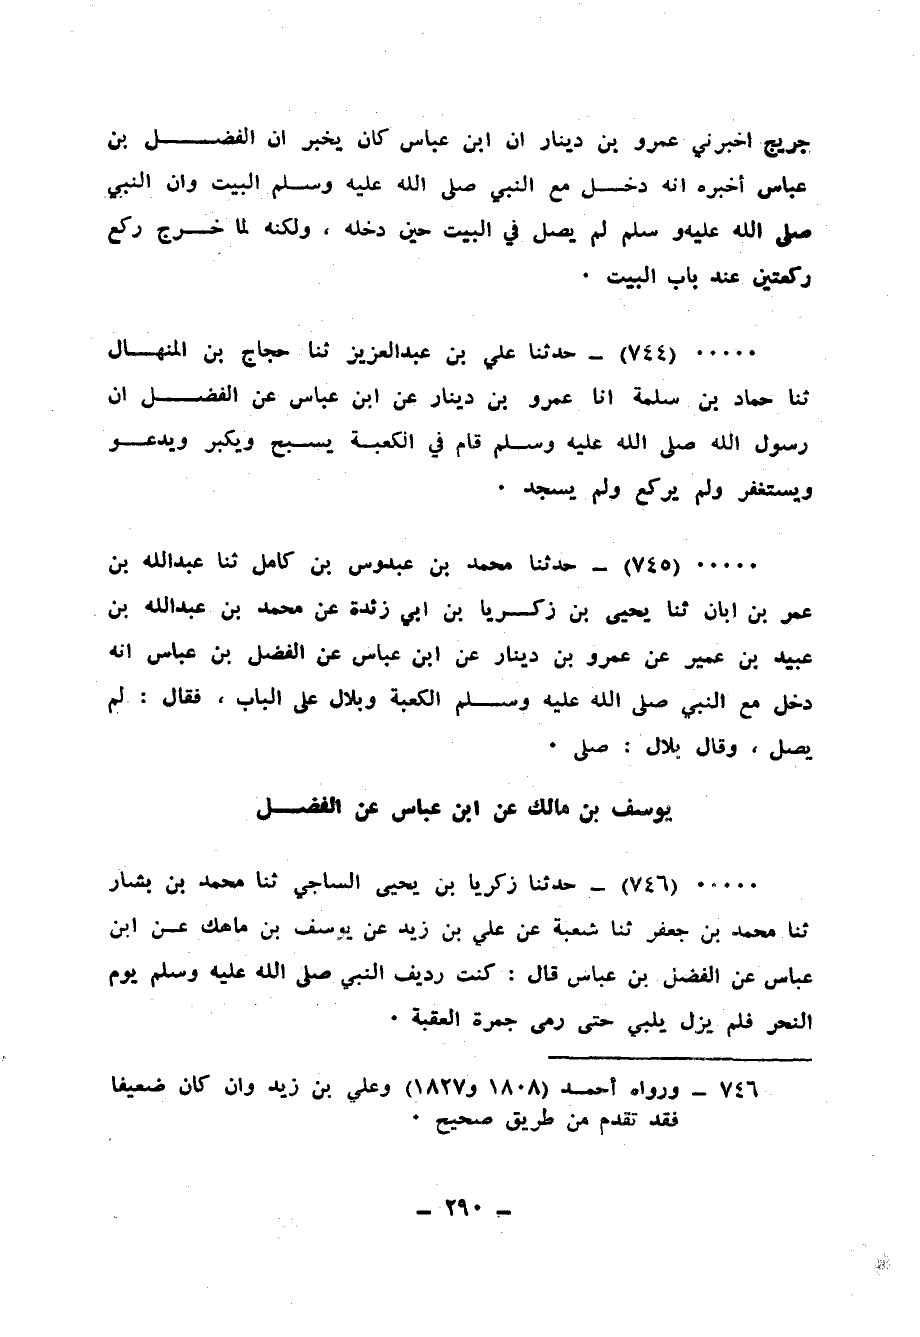 جريج اخبرني عمرو بن دينار ان ابن عباس كان يخبر ان الفضـــــل بن
عباس أخبره انه دخـــل مع النبي صلى الله عليه وســلم البيت وان النبي
صلى الله عليهو سلم لم يصل في البيت حين دخله ، ولكنه لما خـــرج ركع
ركعتين عند باب البيت ٠
٠٠٠٠٠ (٧٤٤) ــ حدثنا علي بن عبدالعزيز ثنا حجاج بن المنهـــال
ثنا حماد بن سلمة انا عمرو بن دينار عن ابن عباس عن الفضـــــل ان
رسول الله صلى الله عليه وســـلم قام في الكعبـــة يســـبح ويكبر ويدعـــو
ويستغفر ولم يركع ولم يسجد ٠
٠٠٠٠٠ (٧٤٥) ــ حدثنا محمد بن عبدوس بن كامل ثنا عبدالله بن
عمر بن ابان ثنا يحيى بن زكـــريا بن ابي زئدة عن محمد بن عبدالله بن
عبيد بن عمير عن عمرو بن دينار عن ابن عباس عن الفضل بن عباس انه
دخل مع النبي صلى الله عليه وســـلم الكعبة وبلال على الباب ، فقال : لم
يصل ، وقال بلال : صلى ٠
يوسف بن مالك عن ابن عباس عن الفضـــل
٠٠٠٠٠ (٧٤٦) ــ حدثنا زكريا بن يحيى الساجي ثنا محمد بن بشار
ثنا محمد بن جعفر ثنا شعبة عن علي بن زيد عن يوسف بن ماهك عــن ابن
عباس عن الفضل بن عباس قال : كنت رديف النبي صلى الله عليه وسلم يوم
النحر فلم يزل يلبي حتى رمى جمرة العقبة ٠
٧٤٦ ــ ورواه أحمــد (١٨٠٨ و١٨٢٧) وعلي بن زيد وان كان ضعيفا
فقد تقدم من طريق صحيح ٠
ــ ٢٩٠ ــ